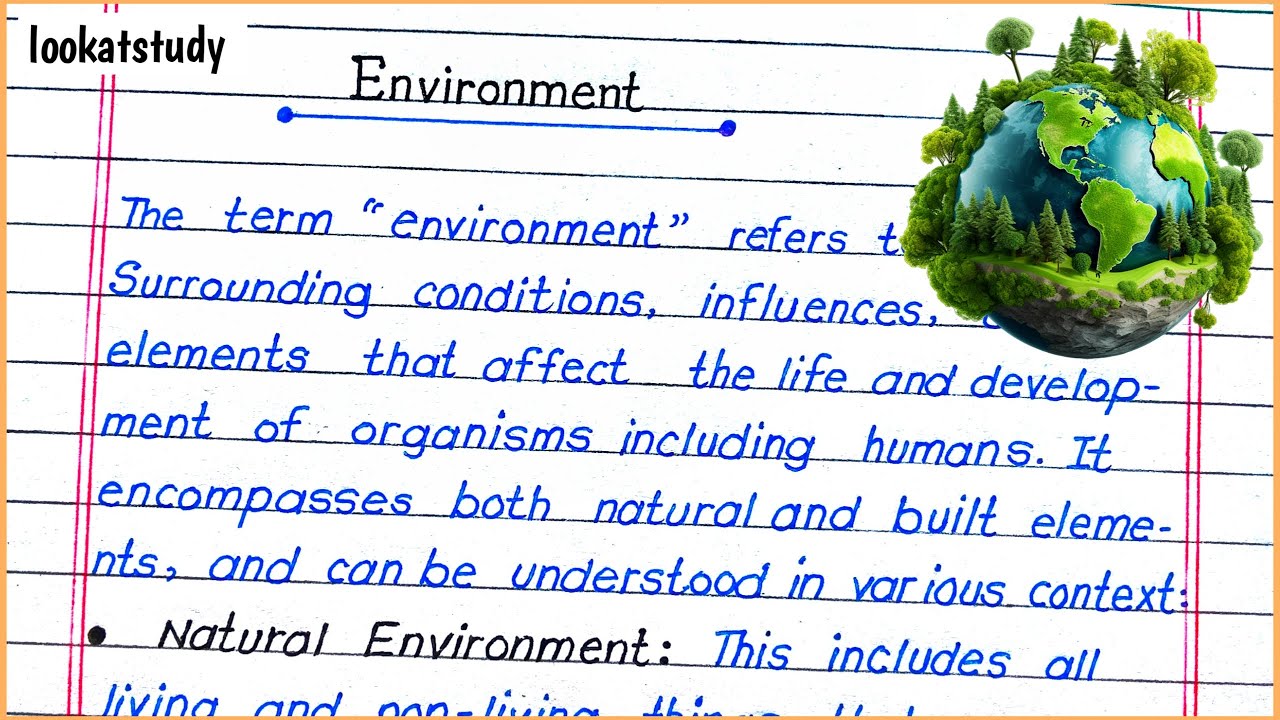 lookatstudy
Environment
The term “environment” refers
Surrounding conditions, influences,
elements that affect the life and develop-
ment of organisms including humans. It
encompasses both natural and built eleme-
nts, and can be understood in various context:
• Natural Environment: This includes all
living and non-living things